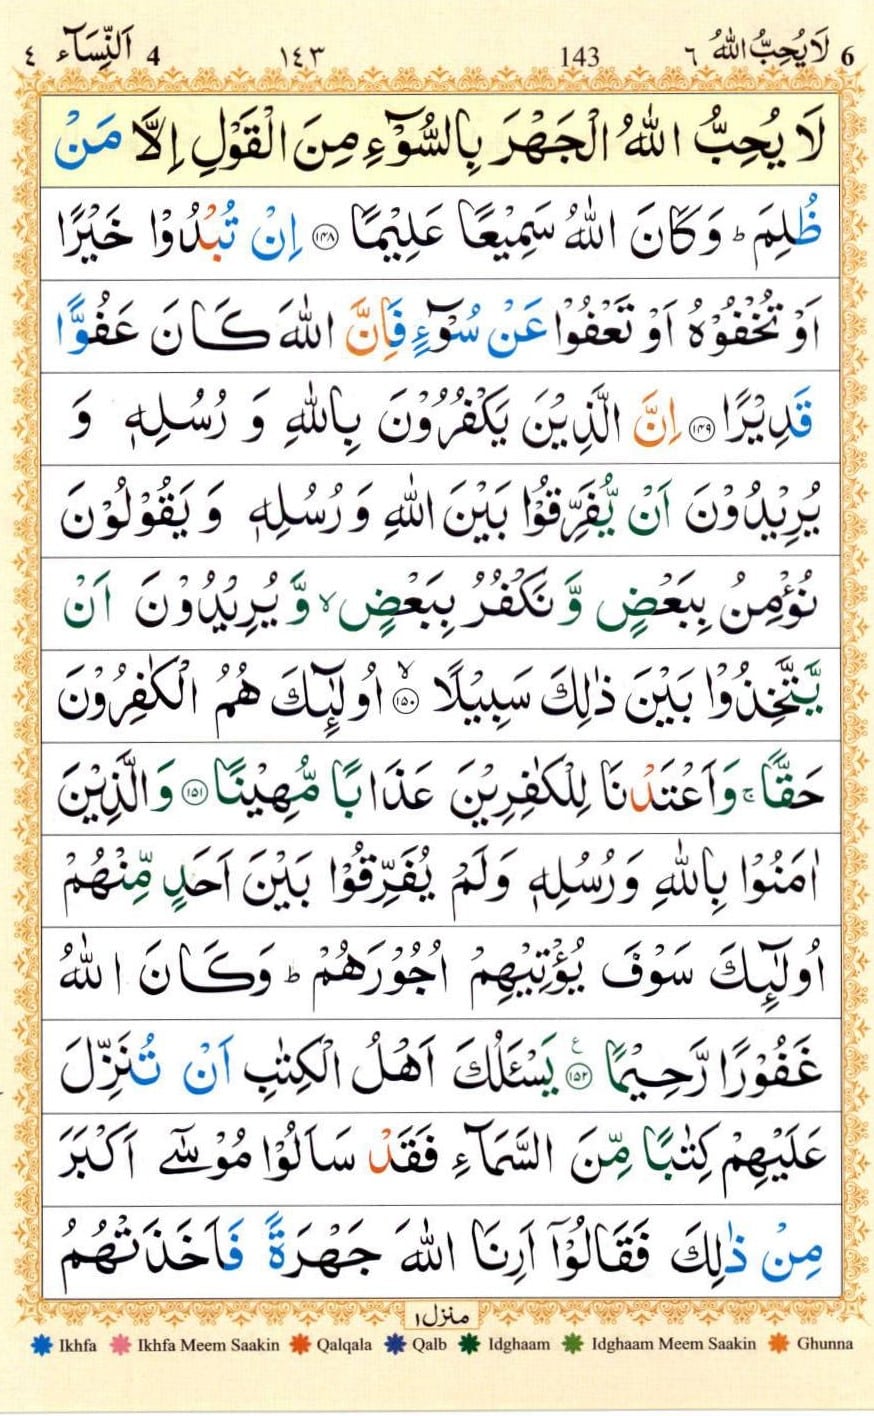 6 لَا يُحِبُّ اللهُ ٦ 143 ١٤٣ 4 اَلنِّسَآء ٤
لَا يُحِبُّ اللهُ الْجَهْرَ بِالسُّوْٓءِ مِنَ الْقَوْلِ اِلَّا مَنْ
ظُلِمَ ؕ وَكَانَ اللهُ سَمِيْعًا عَلِيْمًا ۝١٤٨ اِنْ تُبْدُوْا خَيْرًا
اَوْ تُخْفُوْهُ اَوْ تَعْفُوْا عَنْ سُوْٓءٍ فَاِنَّ اللهَ كَانَ عَفُوًّا
قَدِيْرًا ۝١٤٩ اِنَّ الَّذِيْنَ يَكْفُرُوْنَ بِاللهِ وَ رُسُلِهٖ وَ
يُرِيْدُوْنَ اَنْ يُّفَرِّقُوْا بَيْنَ اللهِ وَ رُسُلِهٖ وَ يَقُوْلُوْنَ
نُؤْمِنُ بِبَعْضٍ وَّ نَكْفُرُ بِبَعْضٍ ۙ وَّ يُرِيْدُوْنَ اَنْ
يَّتَّخِذُوْا بَيْنَ ذٰلِكَ سَبِيْلًا ۝١٥٠ ۙ اُولٰٓئِكَ هُمُ الْكٰفِرُوْنَ
حَقًّا ۚ وَاَعْتَدْنَا لِلْكٰفِرِيْنَ عَذَابًا مُّهِيْنًا ۝١٥١ وَالَّذِيْنَ
اٰمَنُوْا بِاللهِ وَرُسُلِهٖ وَلَمْ يُفَرِّقُوْا بَيْنَ اَحَدٍ مِّنْهُمْ
اُولٰٓئِكَ سَوْفَ يُؤْتِيْهِمْ اُجُوْرَهُمْ ؕ وَكَانَ اللهُ
غَفُوْرًا رَّحِيْمًا ۝١٥٢ ع يَسْـَٔلُكَ اَهْلُ الْكِتٰبِ اَنْ تُنَزِّلَ
عَلَيْهِمْ كِتٰبًا مِّنَ السَّمَآءِ فَقَدْ سَاَلُوْا مُوْسٰٓى اَكْبَرَ
مِنْ ذٰلِكَ فَقَالُوْٓا اَرِنَا اللهَ جَهْرَةً فَاَخَذَتْهُمُ
منزل١
Ikhfa Ikhfa Meem Saakin Qalqala Qalb Idghaam Idghaam Meem Saakin Ghunna